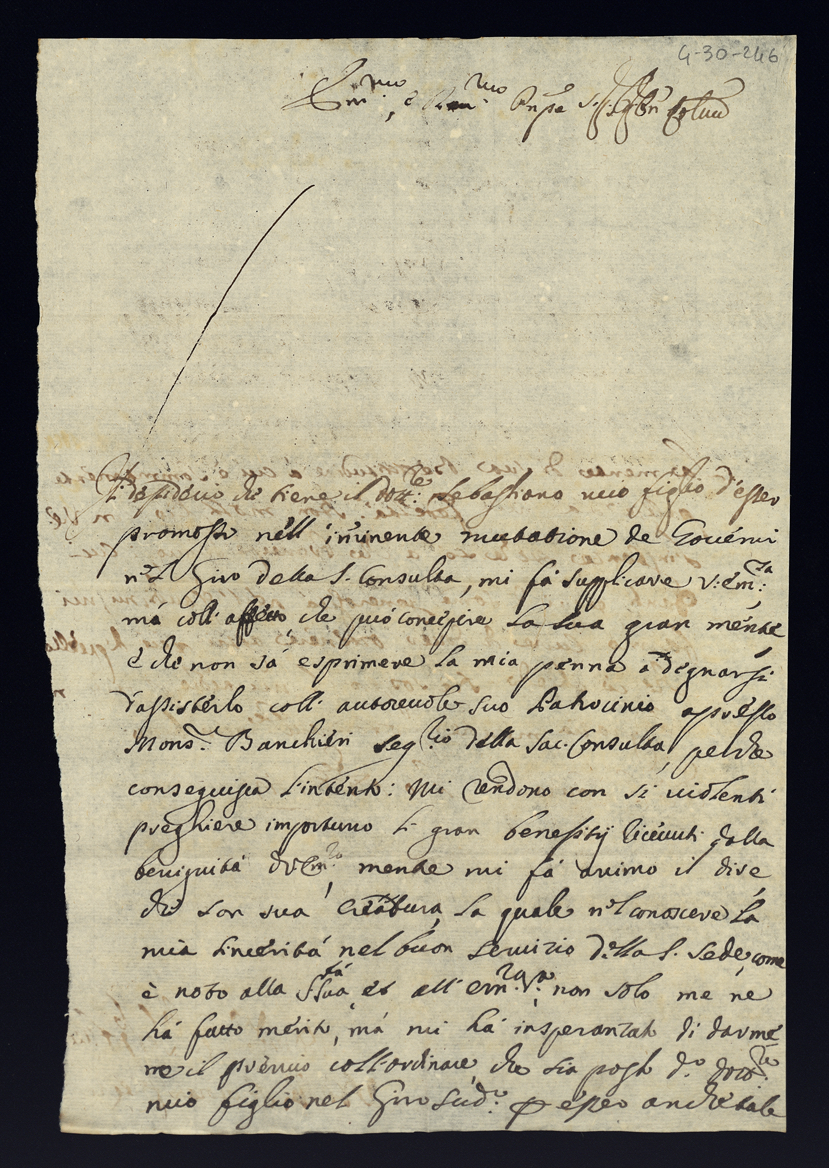 4-30-246
Em.mo, e Rev.mo Prnpe
Il desiderio che tiene il Dott.re Sebastiano mio figlio d'esser
promosso nell'iminente mutatione de Governi
nel Giro della S. Consulta, mi fà supplicare V. Em.za
mà coll'affetto che può concepire la sua gran mente
e che non sà esprimere la mia penna à degnarsi
d'assisterlo coll'autorevole suo Patrocinio appresso
Mons.r Banchieri Seg.rio della Sac. Consulta, perche
conseguisca l'intento: Mi rendono con si violenti
preghiere importuno li gran benefitij ricevuti dalla
benignità di V. Em.za, mentre mi fà animo il dire
che son sua creatura, la quale nel conoscere la
mia sincerità nel buon servizio della S. Sede, come
è noto alla S.tà Sua, et all'Em.za V.a, non solo me ne
hà fatto merito, mà mi hà insperanzato di darme
ne il premio coll'ordinare che sia posto d.o Dott.re
mio figlio nel Giro sud.o p esser anche tale